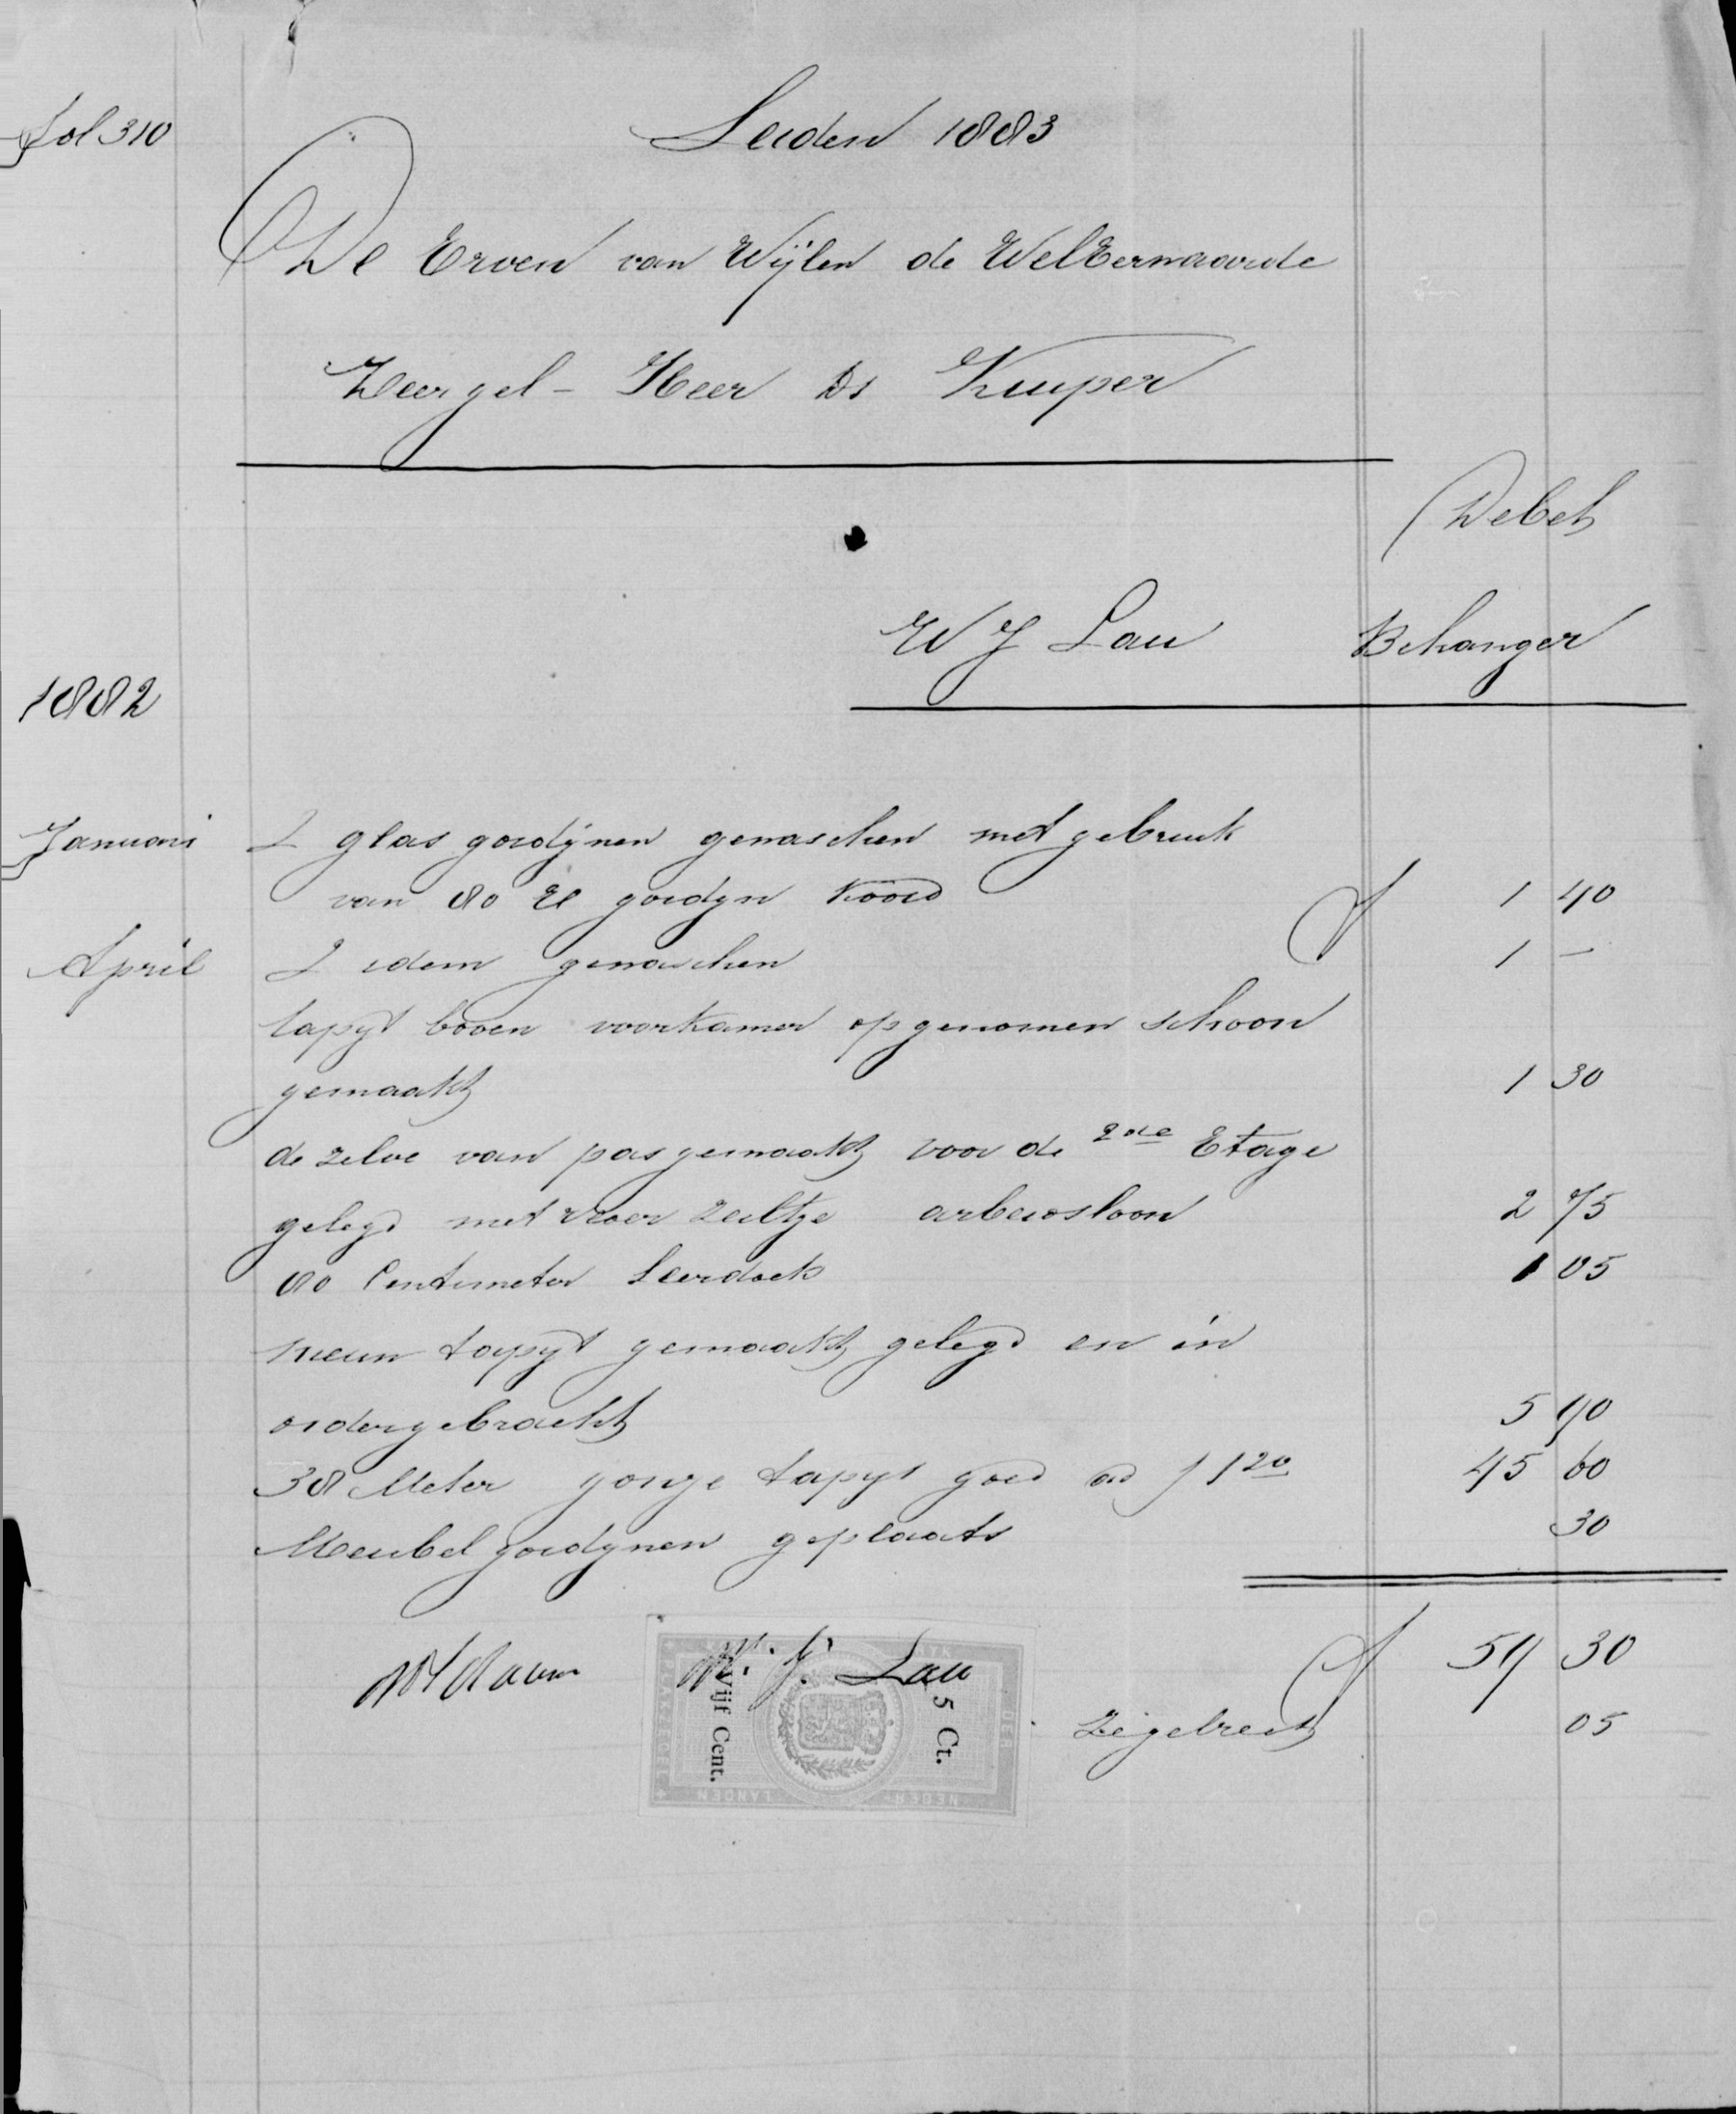 fol 310
Leiden 1883
De Erven van Wijlen de WelEerwaarde
Zeergel- Heer Ds Kuiper
Debet
W J Lau Behanger
1882
Januari 2 glas gordijnen gewasschen met gebruik
van 80 El gordyn koord f 1 40
April 2 idem gewasschen 1 —
tapyt boven voorkamer opgenomen schoon
gemaakt 1 30
de zelve van pas gemaakt voor de 2de Etage
gelegd met vloer zeiltje arbeidsloon 2 75
80 Centimeter Leerdoek 1 05
nieuw tapyt gemaakt gelegd en in
ordergebracht 5 90
38 Meter jonge tapyt goed ad f 1 20 45 60
Meubel gordynen geplaats 30
Voldaan W. J. Lau f 59 30
Vijf Cent.
5 Ct.
NEDERLANDEN
Zegelrecht 05